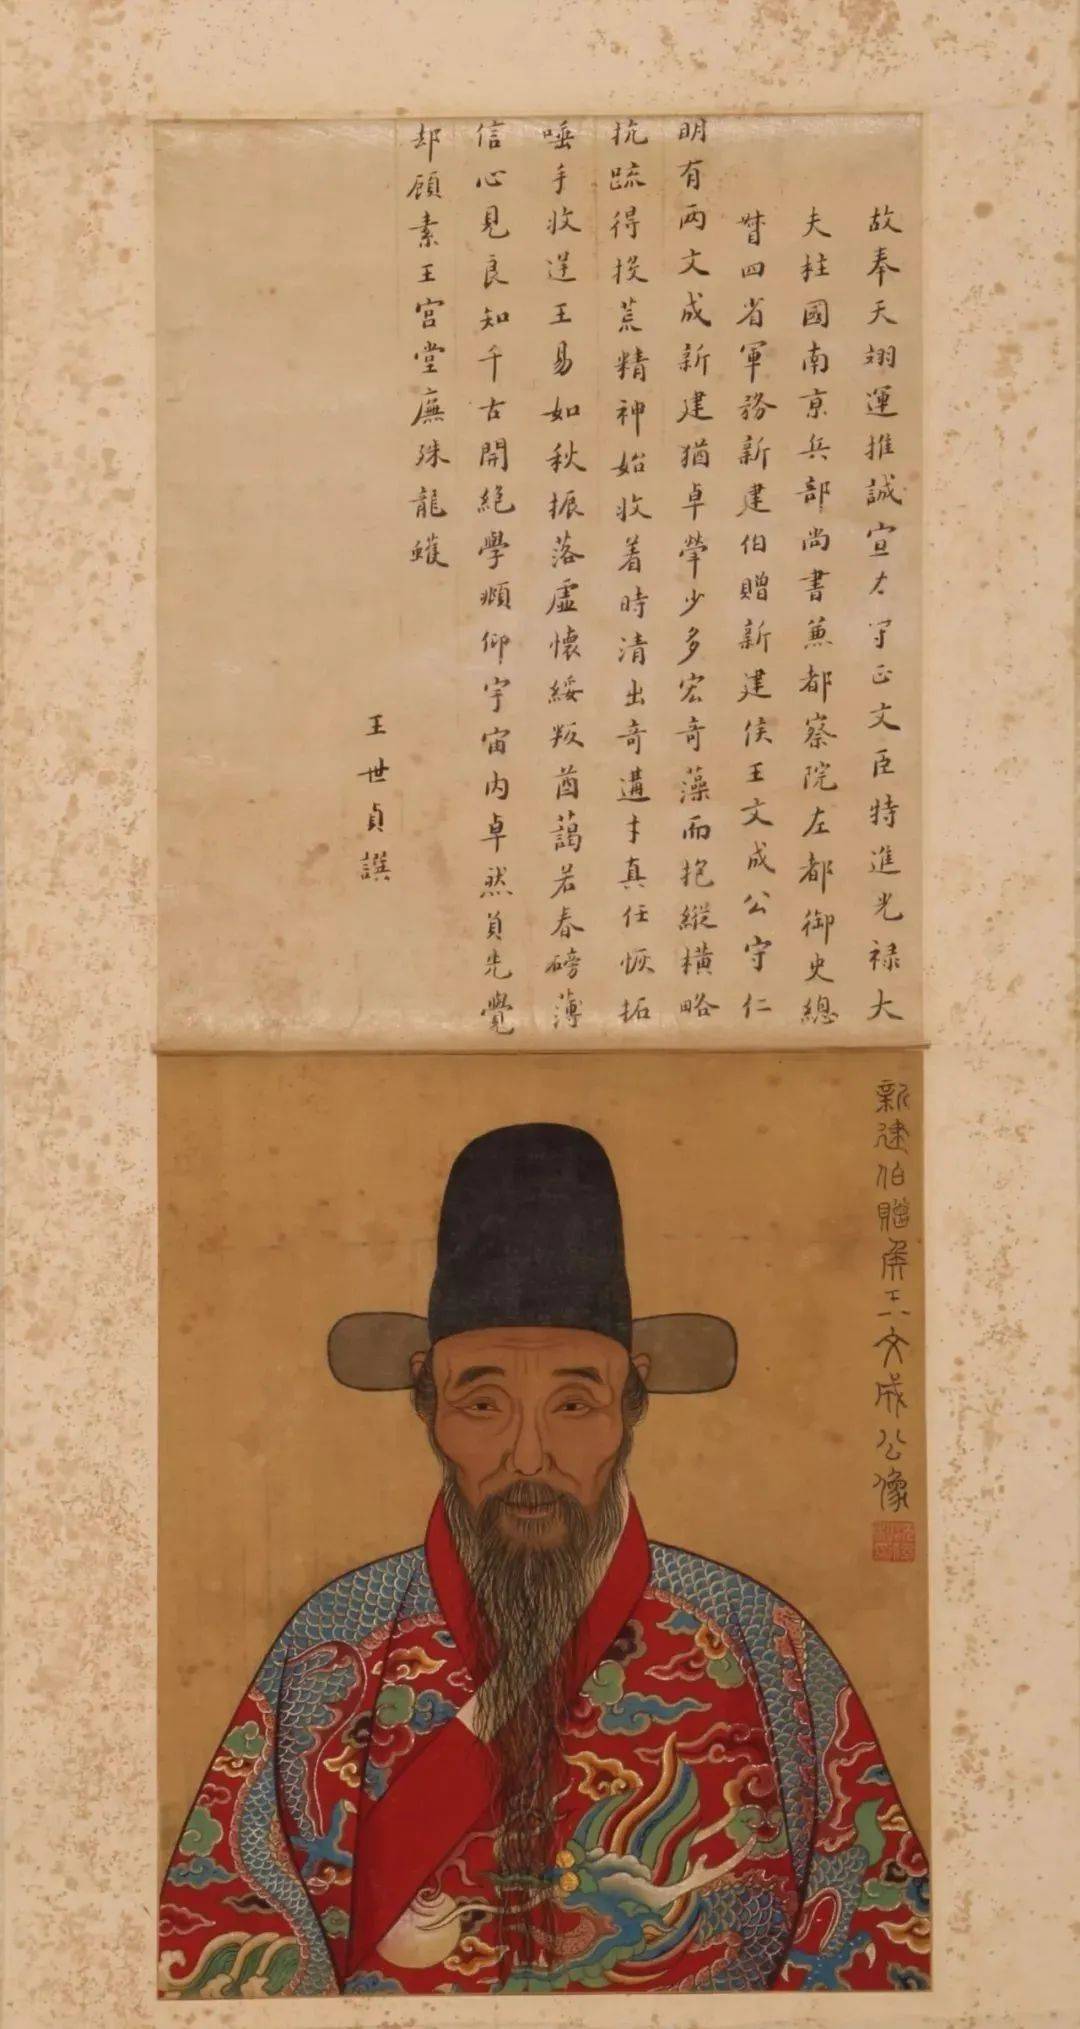 故奉天翊運推誠宣力守正文臣特進光禄大
夫柱國南京兵部尚書兼都察院左都御史總
督四省軍務新建伯贈新建侯王文成公守仁
明有两文成新建猶卓犖少多宏奇藻而抱縱橫略
抗疏得投荒精神始收着時清出奇遘才真任恢拓
唾手收逆王易如秋振落虛懷綏叛酋藹若春磅薄
信心見良知千古開絕學頫仰宇宙内卓然負先覺
却顧素王宮堂廡殊龍蠖
王世貞譔
新建伯贈侯王文成公像